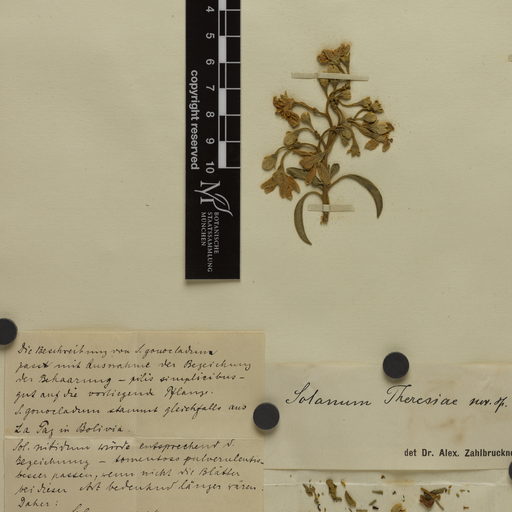 4
5
6
7
8
9
10
copyright reserved
BOTANISCHE
STAATSSAMMLUNG
MÜNCHEN
Die Beschreibung von S. gonocladum
passt mit Ausnahme der Bezeichnung
der Behaarung – pilis simplicibus –
gut auf die vorliegende Pflanze.
S. gonocladum stammt gleichfalls aus
La Paz in Bolivia.
Sol. nitidum würde entsprechend d.
Bezeichnung – tomentoso pulverulentis –
besser passen, wenn nicht die Blätter
bei dieser Art bedeutend länger wären
Daher:
Solanum Theresiae nov. sp.
det Dr. Alex. Zahlbruckne